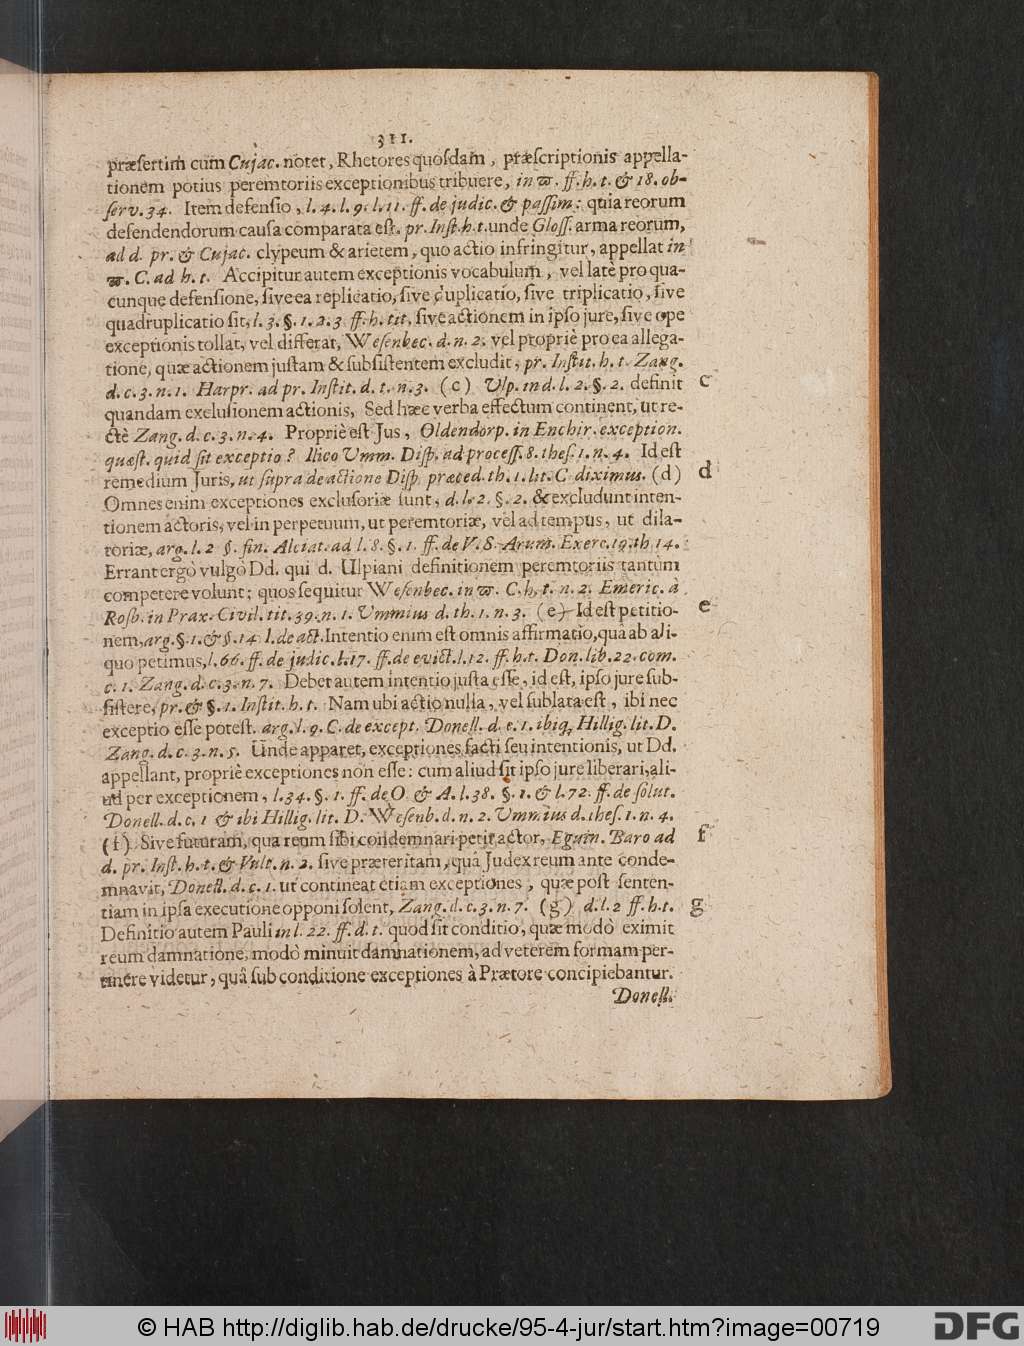 311.
præsertim cum Cujac. notet, Rhetores quosdam, præscriptionis appella-
tionem potius peremtoriis exceptionibus tribuere, in ϖ. ff. h. t. & 18. ob-
serv. 34. Item defensio, l. 4. l. 9. l. 11. ff. de judic. & passim: quia reorum
defendendorum causa comparata est. pr. Inst. h. t. unde Gloss. arma reorum,
ad d. pr. & Cujac. clypeum & arietem, quo actio infringitur, appellat in
ϖ. C. ad h. t. Accipitur autem exceptionis vocabulum, vel latè pro qua-
cunque defensione, sive ea replicatio, sive duplicatio, sive triplicatio, sive
quadruplicatio sit, l. 3. §. 1. 2. 3 ff. h. tit, sive actionem in ipso jure, sive ope
exceptionis tollat, vel differat, Wesenbec. d. n. 2. vel propriè pro ea allega-
tione, quæ actionem justam & subsistentem excludit, pr. Instit. h. t. Zang.
d. c. 3. n. 1. Harpr. ad pr. Instit. d. t. n. 3. (c) Ulp. in d. l. 2. §. 2. definit c
quandam exclusionem actionis, Sed hæc verba effectum continent, ut re-
ctè Zang. d. c. 3. n. 4. Propriè est Jus, Oldendorp. in Enchir. exception.
quæst. quid sit exceptio? Ilico Umm. Disp. ad process. 8. thes. 1. n. 4. Id est
remedium Juris, ut supra de actione Disp. præced. th. 1. lit. C diximus. (d) d
Omnes enim exceptiones exclusoriæ sunt, d. l. 2. §. 2. & excludunt inten-
tionem actoris, vel in perpetuum, ut peremtoriæ, vel ad tempus, ut dila-
toriæ, arg. l. 2 §. fin. Alciat. ad l. 8. §. 1. ff. de V. S. Arum. Exerc. 19. th. 14.
Errant ergò vulgò Dd. qui d. Ulpiani definitionem peremtoriis tantùm
competere volunt; quos sequitur Wesenbec. in ϖ. C. h. t. n. 2. Emeric. à
Rosb. in Prax. Civil. tit. 39. n. 1. Ummius d. th. 1. n. 3. (e) Id est petitio- e
nem, arg. §. 1. & §. 14 I. de act. Intentio enim est omnis affirmatio, qua ab ali-
quo petimus, l. 66. ff. de judic. l. 17. ff. de evict. l. 12. ff. h. t. Don. lib. 22. com.
c. 1. Zang. d. c. 3. n. 7. Debet autem intentio justa esse, id est, ipso jure sub-
sistere, pr. & §. 1. Instit. h. t. Nam ubi actio nulla, vel sublata est, ibi nec
exceptio esse potest. arg. l. 9. C. de except. Donell. d. c. 1. ibiq; Hillig. lit. D.
Zang. d. c. 3. n. 5. Unde apparet, exceptiones facti seu intentionis, ut Dd.
appellant, propriè exceptiones non esse: cum aliud sit ipso jure liberari, ali-
ud per exceptionem, l. 34. §. 1. ff. de O. & A. l. 38. §. 1. & l. 72. ff. de solut.
Donell. d. c. 1 & ibi Hillig. lit. D. Wesenb. d. n. 2. Ummius d. thes. 1. n. 4.
(f) Sive futuram, qua reum sibi condemnari petit actor, Eguin. Baro ad f
d. pr. Inst. h. t. & Vult. n. 2. sive præteritam, quâ Judex reum ante conde-
mnavit, Donell. d. c. 1. ut contineat etiam exceptiones, quæ post senten-
tiam in ipsa executione opponi solent, Zang. d. c. 3. n. 7. (g) d. l. 2 ff. h. t. g
Definitio autem Pauli in l. 22. ff. d. t. quod sit conditio, quæ modò eximit
reum damnatione, modò minuit damnationem, ad veterem formam per-
tinere videtur, quâ sub conditione exceptiones à Prætore concipiebantur.
Donell.
© HAB http://diglib.hab.de/drucke/95-4-jur/start.htm?image=00719
DFG